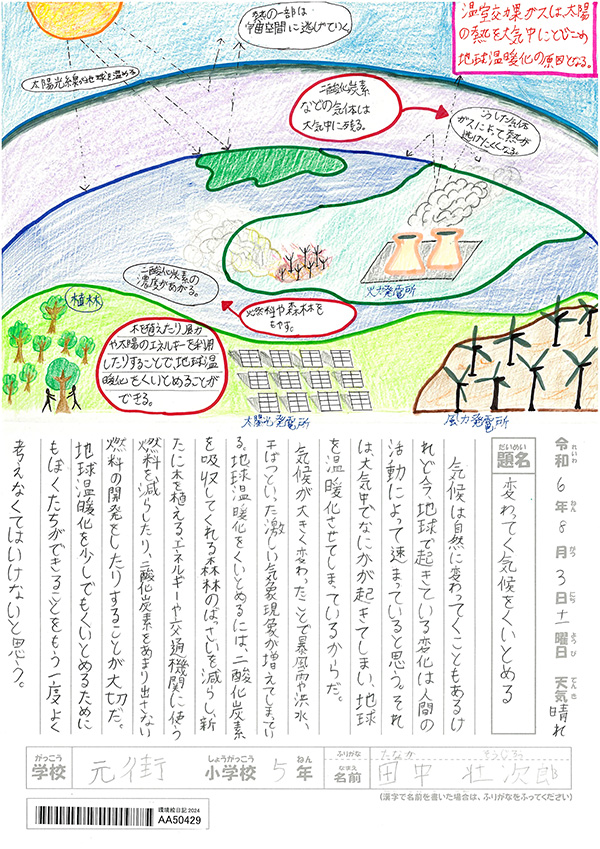 温室効果ガスは、太陽
の熱を大気中にとどめ
地球温暖化の原因となる。
熱の一部は
宇宙空間に逃げていく
太陽光線が地球を温める
二酸化炭素
などの気体は
大気中に残る。
こうした気体
ガスによって熱が
逃げにくくなる。
二酸化炭素の
濃度があがる。
燃料や森林を
もやす。
火力発電所
植林
木を植えたり、風力
や太陽のエネルギーを利用
したりすることで、地球温
暖化をくいとめることが
できる。
太陽光発電所
風力発電所
令和6年8月3日土曜日 天気 晴れ
れいわ ねん がつ にち ようび てんき
だいめい
題名
変わってく気候をくいとめる
気候は自然に変わってくこともあるけ
れど今、地球で起きている変化は人間の
活動によって速まっていると思う。それ
は大気中でなにかが起きてしまい、地球
を温暖化させてしまっているからだ。
気候が大きく変わったことで暴風雨や洪水、
干ばつといった激しい気象現象が増えてしまってい
る。地球温暖化をくいとめるには、二酸化炭素
を吸収してくれる森林のばっさいを減らし、新
たに木を植える、エネルギーや交通機関に使う
燃料を減らしたり、二酸化炭素をあまり出さない
燃料の開発をしたりすることが大切だ。
地球温暖化を少しでもくいとめるために
もぼくたちができることをもう一度よく
考えなくてはいけないと思う。
がっこう しょうがっこう ねん ふりがな たなか そうじろう
学校 元街 小学校 5年 なまえ 名前 田中 壮次郎
(漢字で名前を書いた場合は、ふりがなをふってください)
環境絵日記2024
AA50429